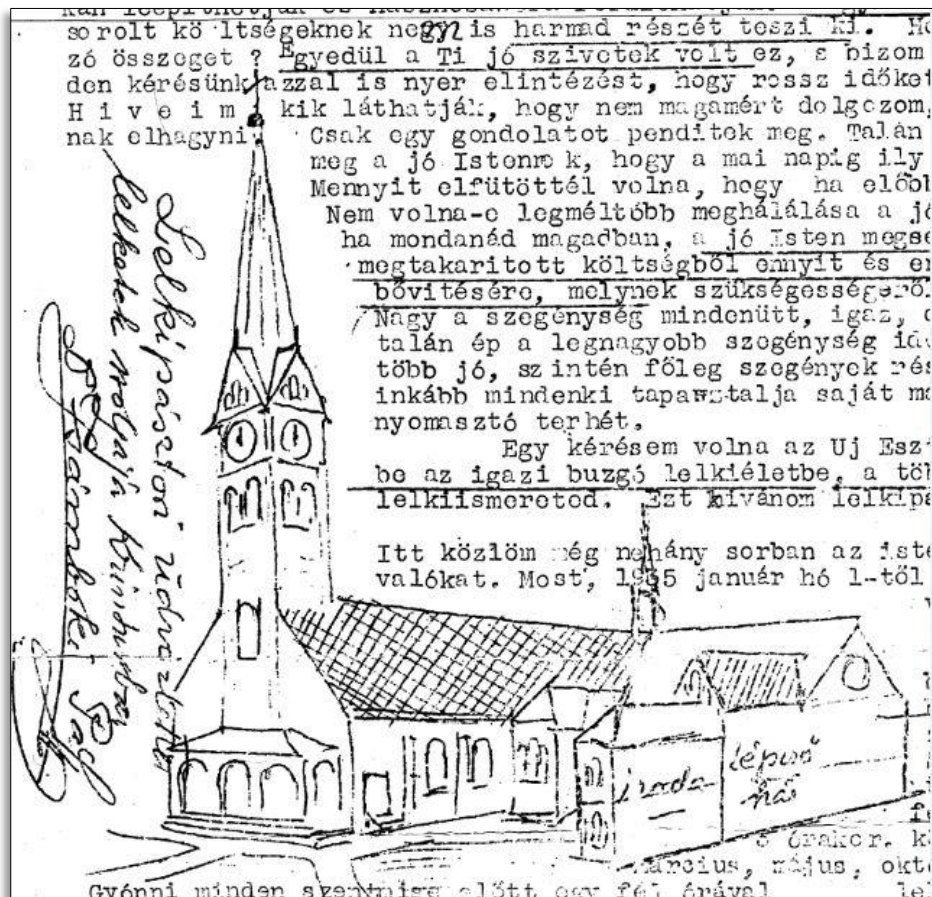 sorolt kö ltségeknek negyn is harmad részét teszi ki.
zó összeget ? Egyedül a Ti jó szivetek volt ez, s bizom
den kérésünk azzal is nyer elintézést, hogy rossz időket
H i v e i m kik láthatják, hogy nem magamért dolgozom,
nak elhagyni. Csak egy gondolatot penditek meg. Talán
meg a jó Istennek, hogy a mai napig ily
Mennyit elfütöttél volna, hogy ha előbb
Nem volna-e legméltóbb meghálálása a jó
ha mondanád magadban, a jó Isten megse
megtakaritott költségből ennyit és en
bővitésére, melynek szükségességerő
Nagy a szegénység mindenütt, igaz,
talán ép a legnagyobb szegénység idő
több jó, sz intén főleg szegények rés
inkább mindenki tapasztalja saját ma
nyomasztó terhét.
Egy kérésem volna az Uj Esz
be az igazi buzgó lelkiéletbe, a töb
lelkiismereted. Ezt kivánom lelkipá
Itt közlöm még nehány sorban az iste
valókat. Most, 1935 január hó 1-től
Lelkipásztori üdvözlettel
lelketek
iroda
lépcső
ház
órakor.
március, május, okt
Gyónni minden szentmise előtt egy fél órával